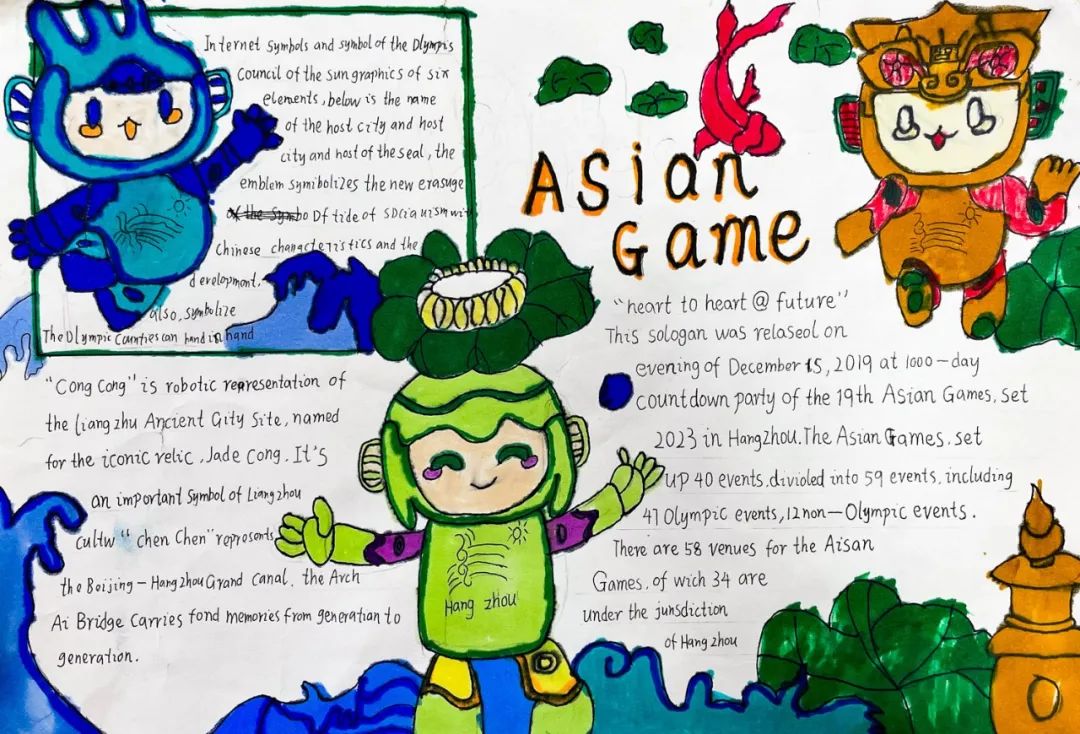 Internet symbols and symbol of the Olympis
Council of the sun graphics of six
elements, below is the name
of the host city and host
city and host of the seal, the
emblem symibolizes the new erasuge
Of tide of socia uism wit
Chinese characteteristics and the
development.
also, symbolize
The Olympic Counties can hand in hand
Asian
Game
"heart to heart @ future"
This sologan was relaseol on
evening of December 15, 2019 at 1000-day
countdown party of the 19th Asian Games, set
2023 in HangZhou. The Asian Games, set
UP 40 events, divioled into 59 events, including
41 Olympic events, 12 non-Olympic events.
There are 58 venues for the Aisan
Games, of wich 34 are
under the junsdiction
of Hang zhou
"Cong Cong" is robotic representation of
the Liang zhu Ancient Gity Site, named
for the iconic relic, Jade Cong. It's
an important Symbol of Liang zhou
cultw " chen Chen" represents
the Beijing-Hang zhou Grand Canal. the Arch
Ai Bridge Carries fond memories from generation to
generation.
Hang zhou